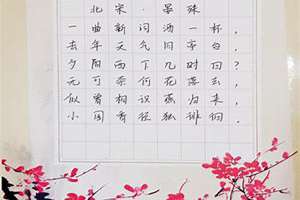 北宋·晏殊
一曲新词酒一杯，
去年天气旧亭台。
夕阳西下几时回？
无可奈何花落去，
似曾相识燕归来，
小园香径独徘徊。